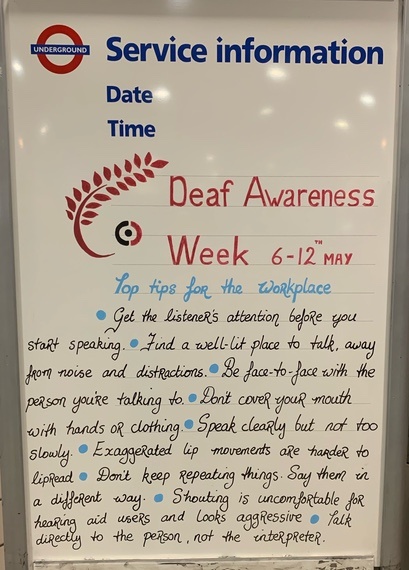 UNDERGROUND
Service information
Date
Time
Deaf Awareness
Week 6-12TH MAY
Top tips for the workplace
• Get the listener's attention before you
start speaking. • Find a well-lit place to talk, away
from noise and distractions. • Be face-to-face with the
person you're talking to. • Don't cover your mouth
with hands or clothing. • Speak clearly but not too
slowly. • Exaggerated lip movements are harder to
lipread • Don't keep repeating things. Say them in
a different way. • Shouting is uncomfortable for
hearing aid users and looks aggressive • Talk
directly to the person, not the interpreter.